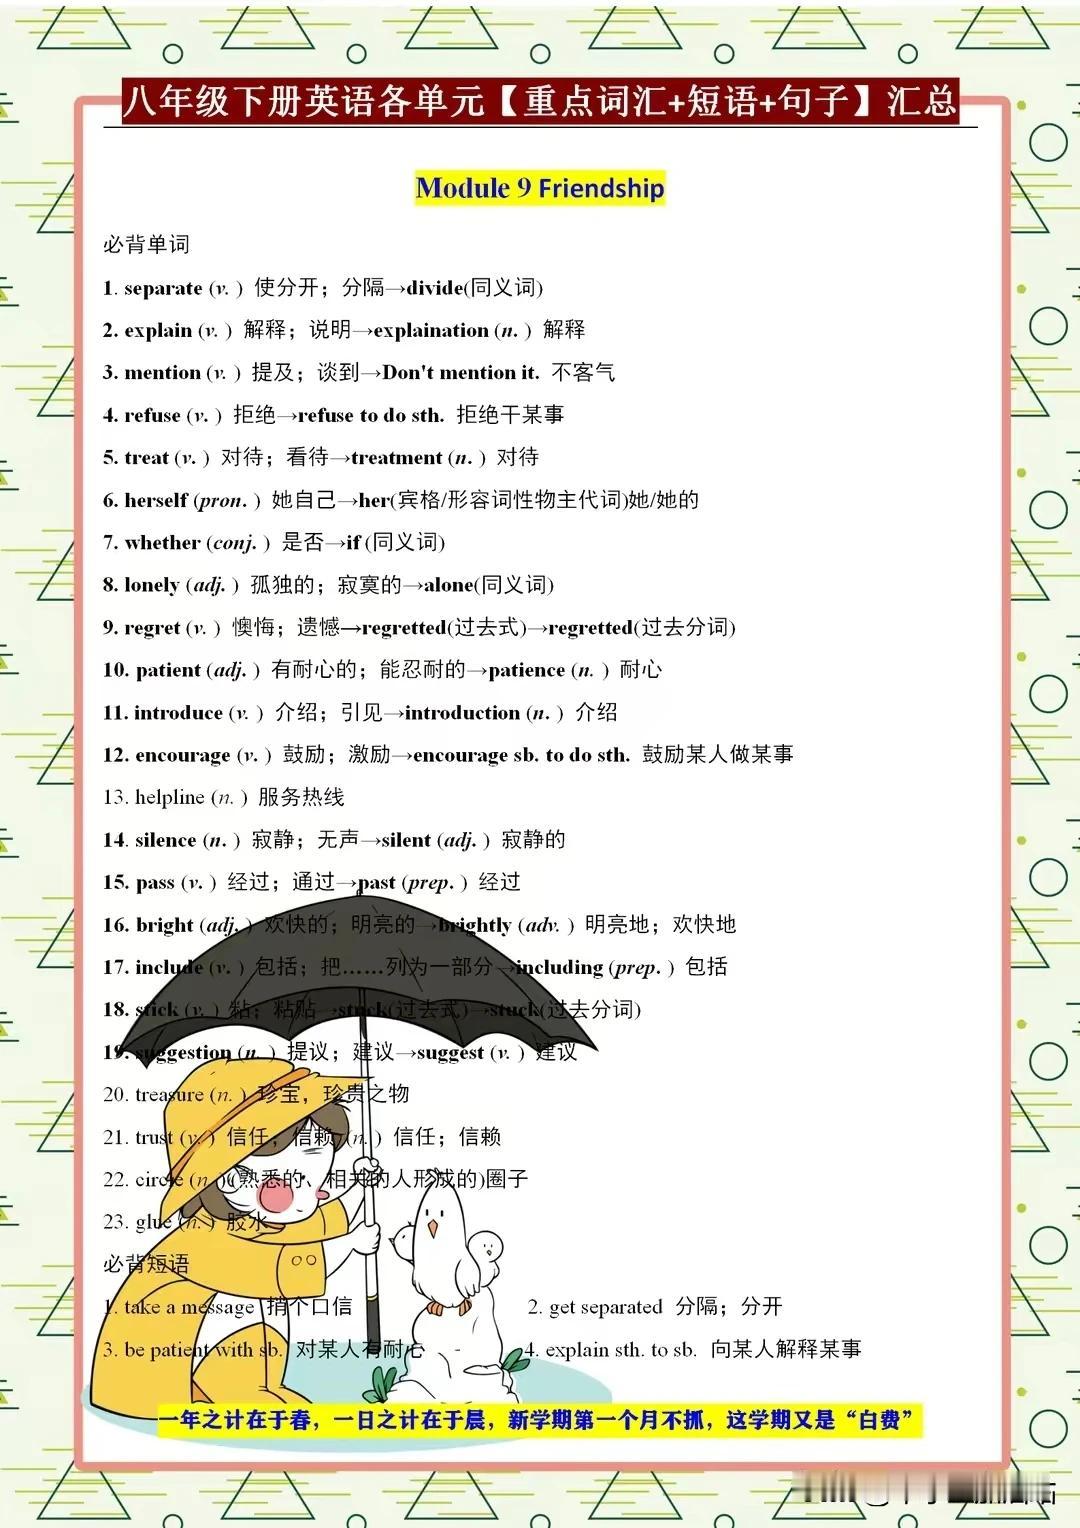 八年级下册英语各单元【重点词汇+短语+句子】汇总
Module 9 Friendship
必背单词
1. separate (v. ) 使分开；分隔→divide(同义词)
2. explain (v. ) 解释；说明→explaination (n. ) 解释
3. mention (v. ) 提及；谈到→Don't mention it. 不客气
4. refuse (v. ) 拒绝→refuse to do sth. 拒绝干某事
5. treat (v. ) 对待；看待→treatment (n. ) 对待
6. herself (pron. ) 她自己→her(宾格/形容词性物主代词)她/她的
7. whether (conj. ) 是否→if (同义词)
8. lonely (adj. ) 孤独的；寂寞的→alone(同义词)
9. regret (v. ) 懊悔；遗憾→regretted(过去式)→regretted(过去分词)
10. patient (adj. ) 有耐心的；能忍耐的→patience (n. ) 耐心
11. introduce (v. ) 介绍；引见→introduction (n. ) 介绍
12. encourage (v. ) 鼓励；激励→encourage sb. to do sth. 鼓励某人做某事
13. helpline (n. ) 服务热线
14. silence (n. ) 寂静；无声→silent (adj. ) 寂静的
15. pass (v. ) 经过；通过→past (prep. ) 经过
16. bright (adj. ) 欢快的；明亮的→brightly (adv. ) 明亮地；欢快地
17. include (v. ) 包括；把……列为一部分→including (prep. ) 包括
18. stick (v. ) 粘；粘贴→stuck(过去式)→stuck(过去分词)
19. suggestion (n. ) 提议；建议→suggest (v. ) 建议
20. treasure (n. ) 珍宝，珍贵之物
21. trust (v. ) 信任；信赖 (n. ) 信任；信赖
22. circle (n. )(熟悉的、相关的人形成的)圈子
23. glue (n. ) 胶水
必背短语
1. take a message 捎个口信 2. get separated 分隔；分开
3. be patient with sb. 对某人有耐心 4. explain sth. to sb. 向某人解释某事
一年之计在于春，一日之计在于晨，新学期第一个月不抓，这学期又是“白费”